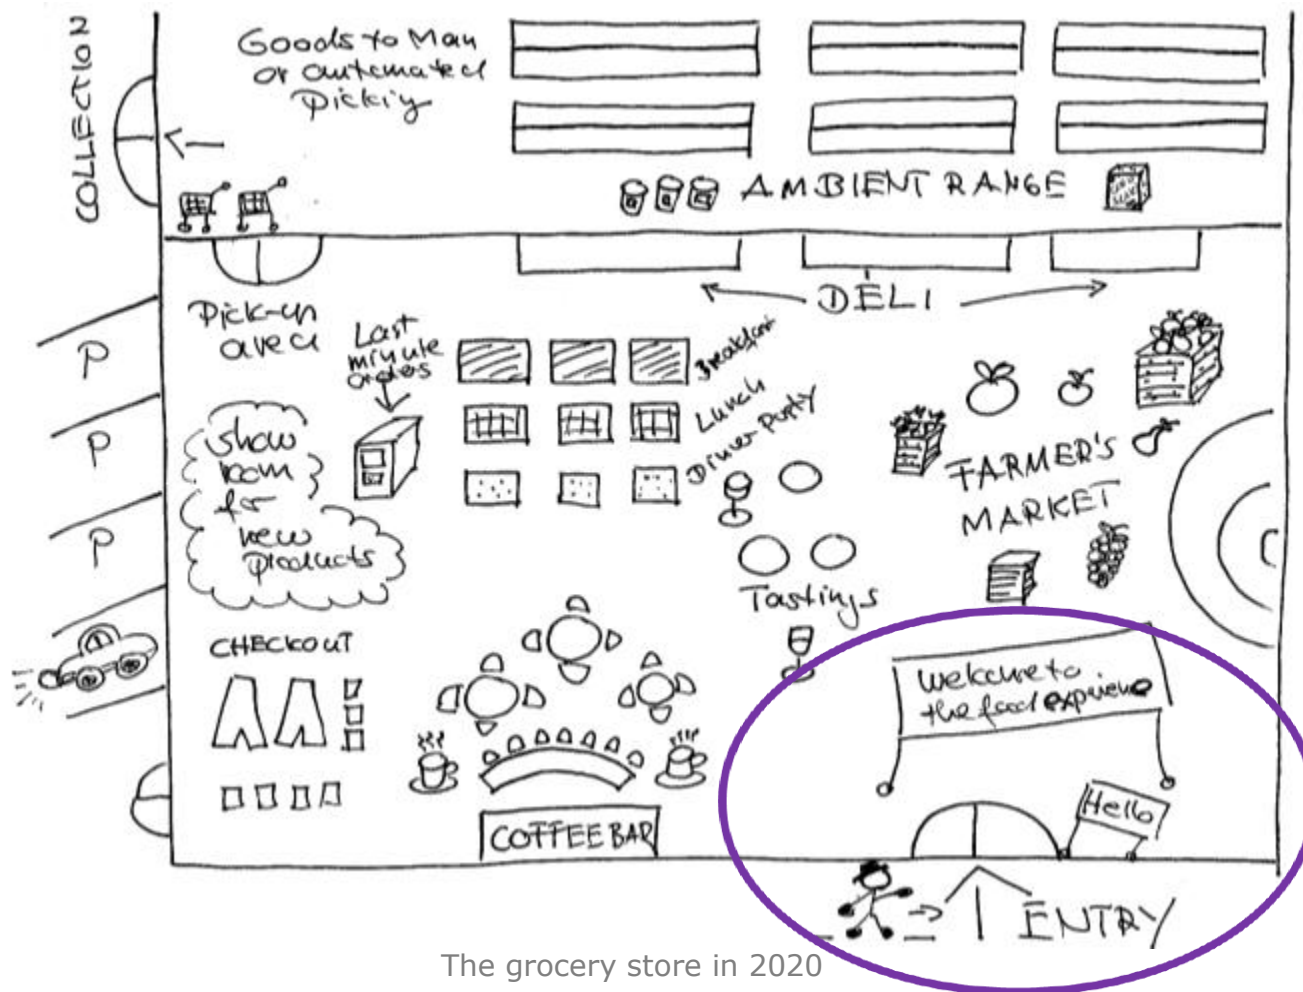 COLLECTION
Goods to Man
or automated
Picking
AMBIENT RANGE
DELI
Pick-up
area
Last
minute
orders
Breakfast
Lunch
Dinner Party
P
P
P
Show
room
for
new
products
FARMER'S
MARKET
Tastings
CHECKOUT
Welcome to
the food experience
Hello
COFFEE BAR
ENTRY
The grocery store in 2020